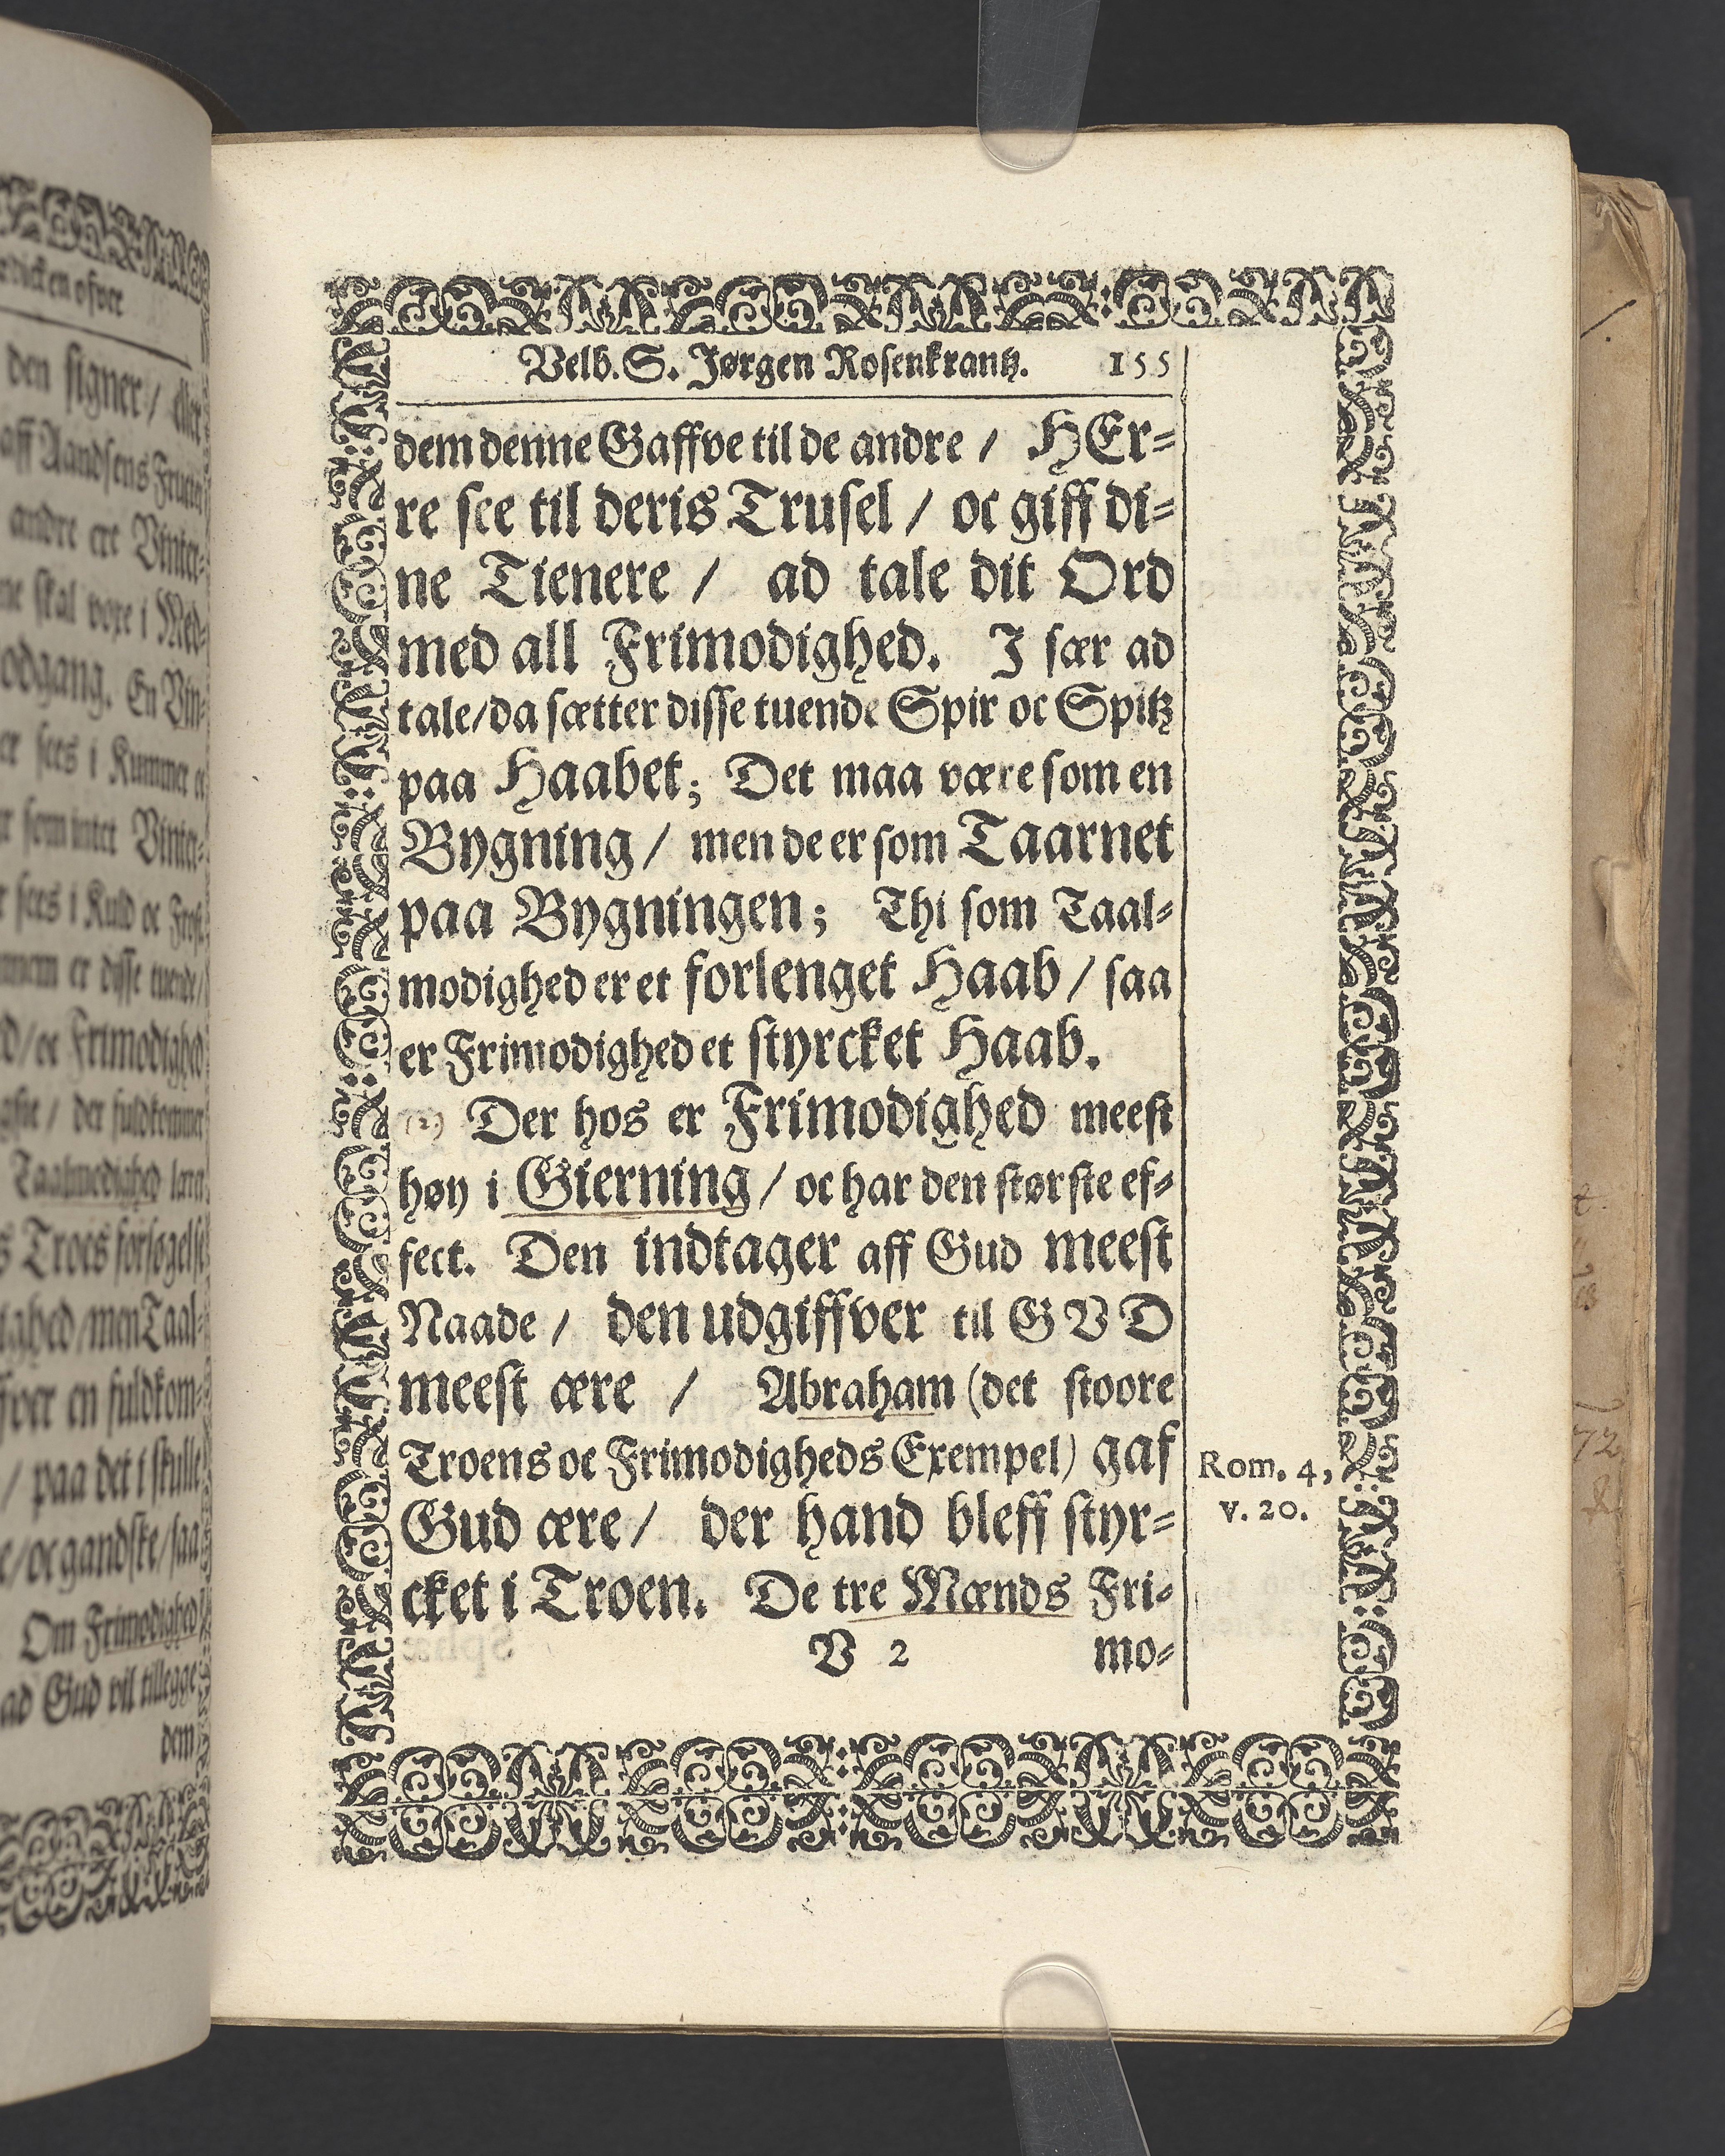 Velb. S. Jørgen Rosenkrantz. 155
dem denne Gaffve til de andre / HEr⸗
re see til deris Trusel / oc giff di⸗
ne Tienere / ad tale dit Ord
med all Frimodighed. I sær ad
tale/da sætter disse tuende Spir oc Spitz
paa Haabet; Det maa være som en
Bygning / men de er som Taarnet
paa Bygningen; Thi som Taal⸗
modighed er et forlenget Haab / saa
er Frimodighed et styrcket Haab.
(2) Der hos er Frimodighed meest
høy i Gierning / oc har den største ef⸗
fect. Den indtager aff Gud meest
Naade / den udgiffver til GVD
meest ære / Abraham (det stoore
Troens oc Frimodigheds Exempel) gaf
Gud ære / der hand bleff styr⸗
cket i Troen. De tre Mænds Fri⸗
V 2 mo⸗
Rom. 4,
v. 20.
dicken ofver
den signer / eller
aff Aandsens Fruct
andre ere Vinter⸗
ne skal voxe i Med⸗
odgang. En Vin⸗
er sees i Kummer
som intet Vinter⸗
sees i Kuld oc Frost
er disse tuende/
d/oc Frimodighed
/ der fuldkommer
Taalmodighed
s Troes forsøgelse
ighed/men Taal⸗
fver en fuldkom⸗
/ paa det i skulle
e/oc gandske/saa
Om Frimodighed
ad Gud vil tillegge
dem